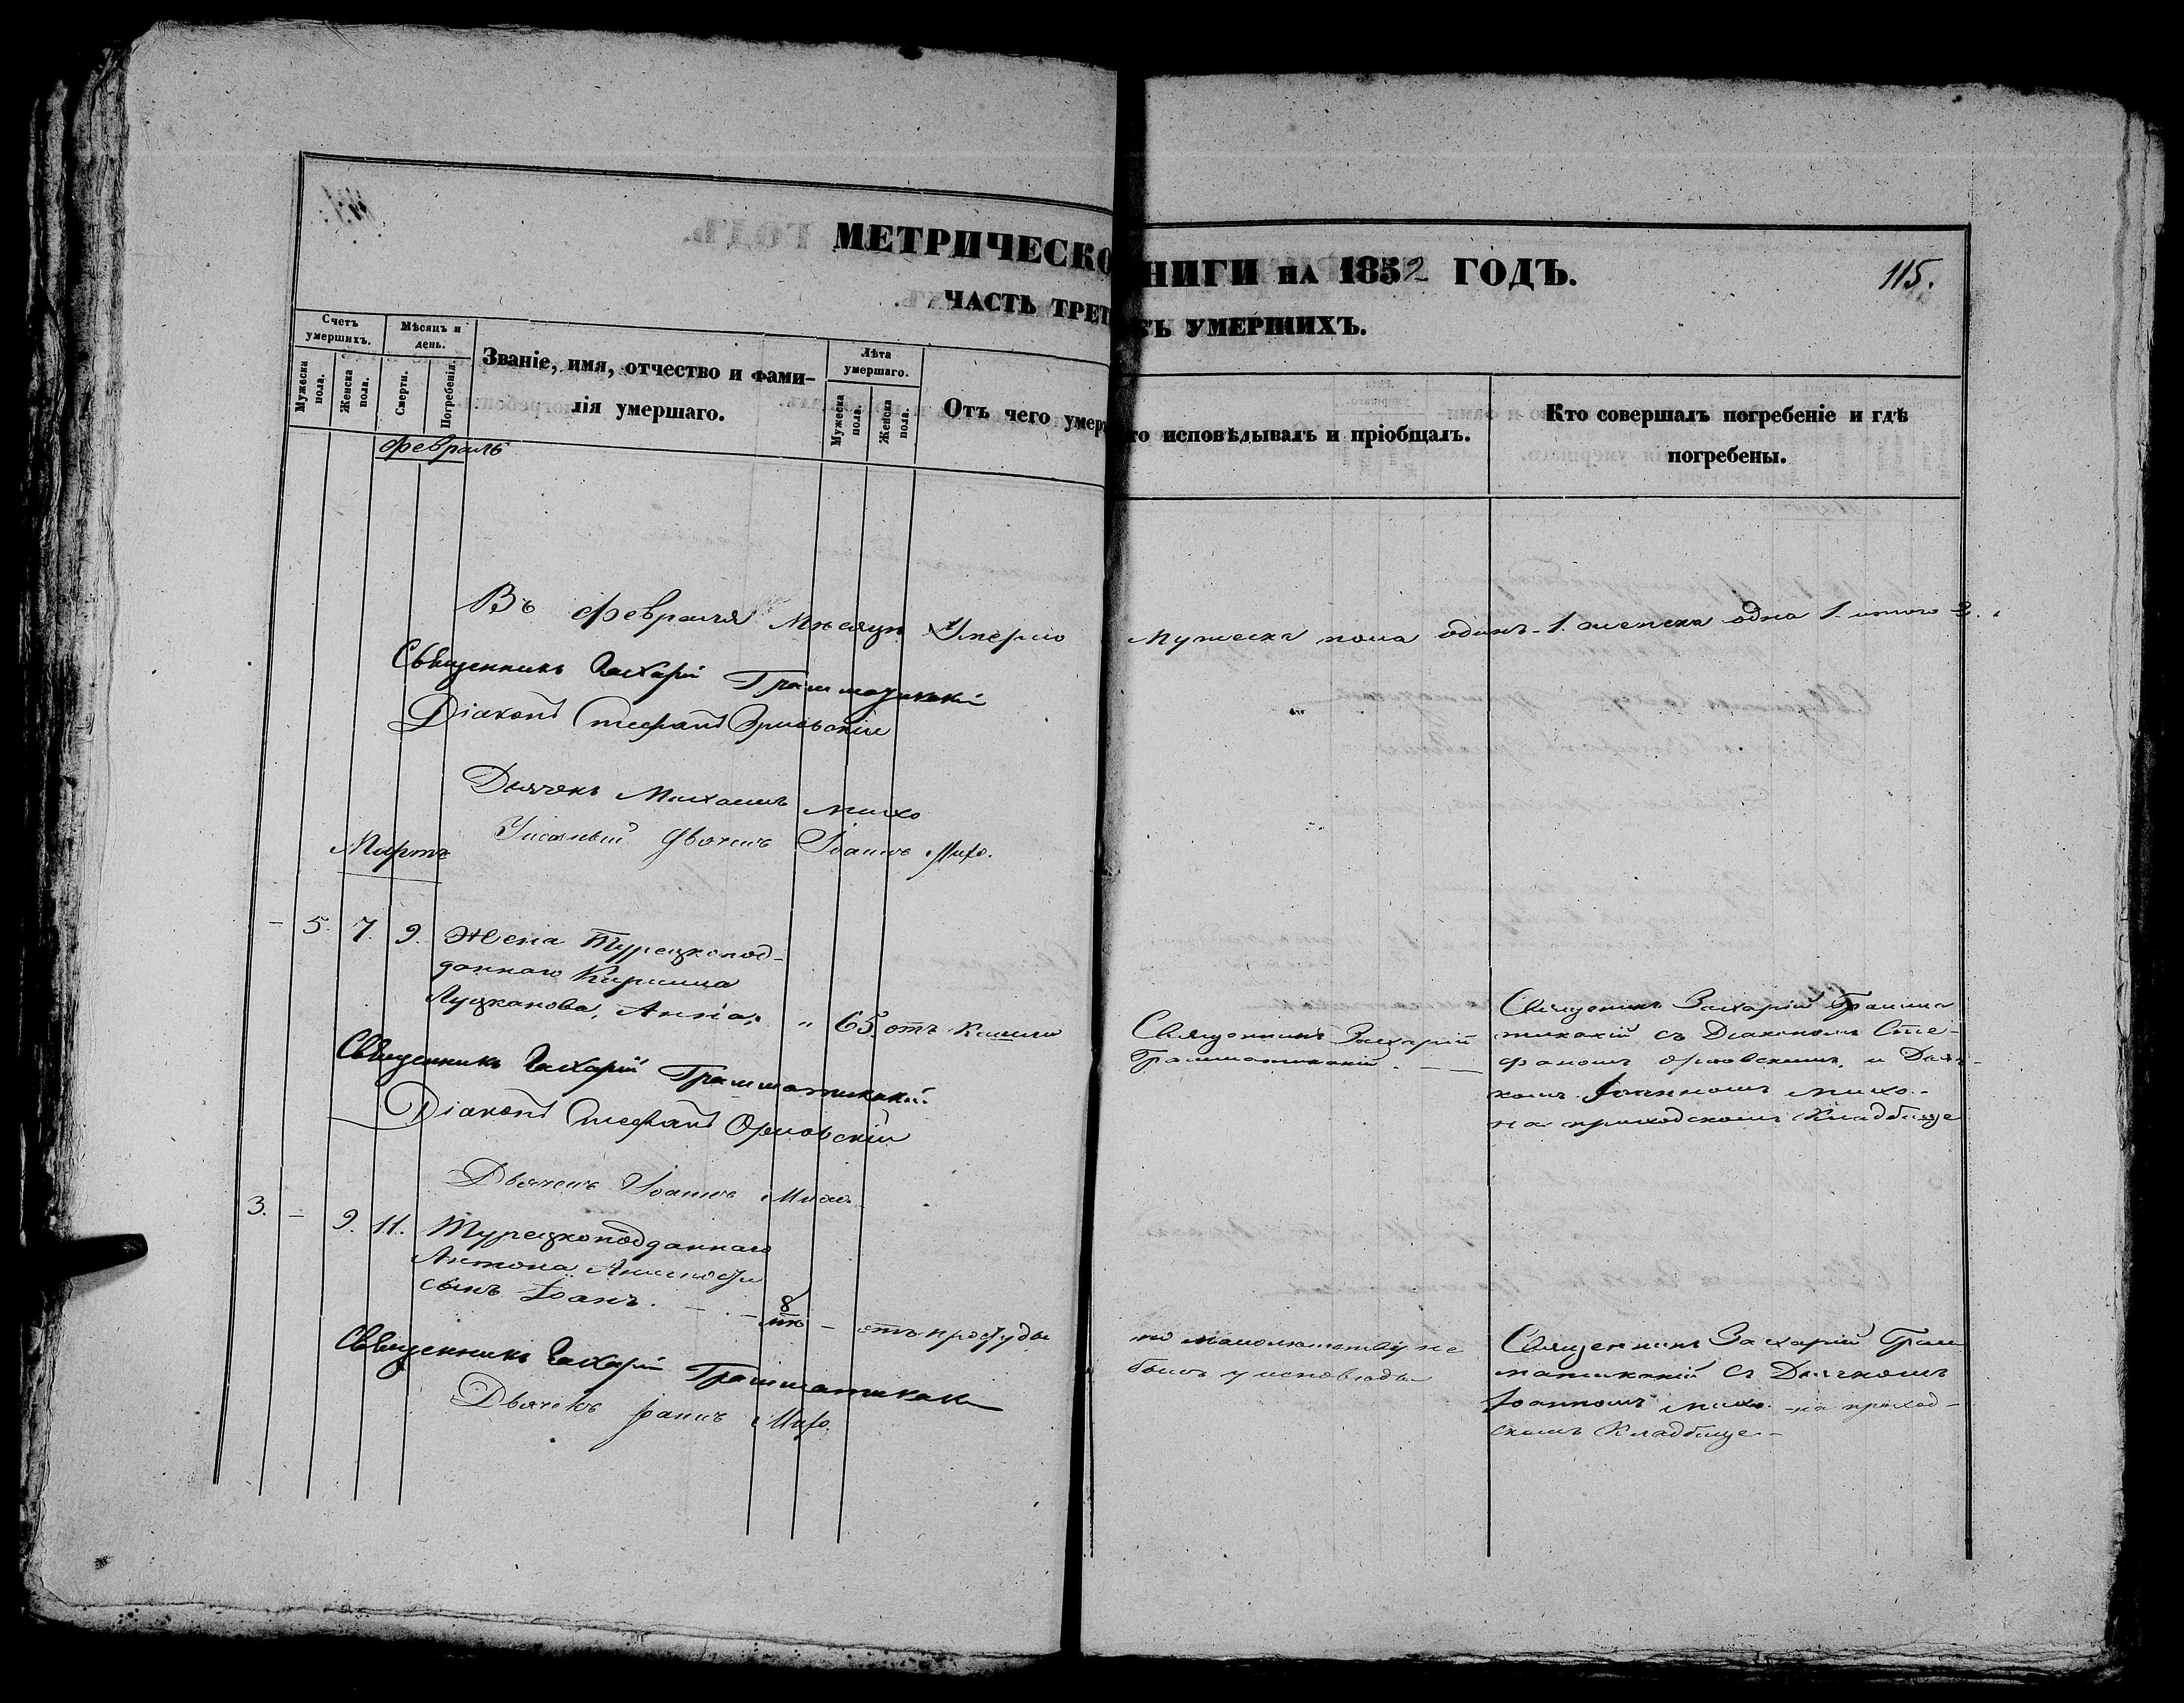 МЕТРИЧЕСКО НИГИ НА 1852 ГОДЪ.
115.
ЧАСТЬ ТРЕТ ХЪ УМЕРШИХЪ.
Счетъ умершихъ.
Мужеска пола.
Женска пола.
Мѣсяцъ и день.
Смерти.
Погребенія.
Званіе, имя, отчество и фами-
лія умершаго.
Лѣта умершаго.
Мужеска пола.
Женска пола.
Отъ чего умер
то исповѣдывалъ и пріобщалъ.
Кто совершалъ погребеніе и гдѣ
погребены.
Февраль
Въ Февралѣ Мѣсяцѣ Умерло Мужеска пола одинъ-1. женска одна 1. итого 2.
Священникъ Захарій Грамматикакій
Діаконъ Стефанъ Орловскій
Дьячекъ Михаилъ Михо
Дьячекъ Іоаннъ Михо.
Мартъ
- 5. 7. 9. Жена Турецкопод-
даннаго Кирилла
Луцканова, Анна, " 65. отъ Кашли
Священникъ Захарій
Грамматикакій. - -
Священникъ Захарій Грамма
тикакій съ Діакономъ Сте-
фаномъ Орловскимъ, и Дьяч-
комъ Іоанномъ Михо.-
на приходскомъ Кладбище
Священникъ Захарій Грамматикакій.
Діаконъ Стефанъ Орловскій
Дьячекъ Іоаннъ Михо.
3. - 9. 11. Турецкоподданнаго
Антона
сынъ Іоанъ. - . - 8 - отъ простуды
по малолѣтству не
былъ у исповѣди
Священникъ Захарій Грам
матикакій съ Дьячкомъ
Іоанномъ Михо. на приход-
скомъ Кладбище -
Священникъ Захарій Грамматикакій
Дьячекъ Іоаннъ Михо.